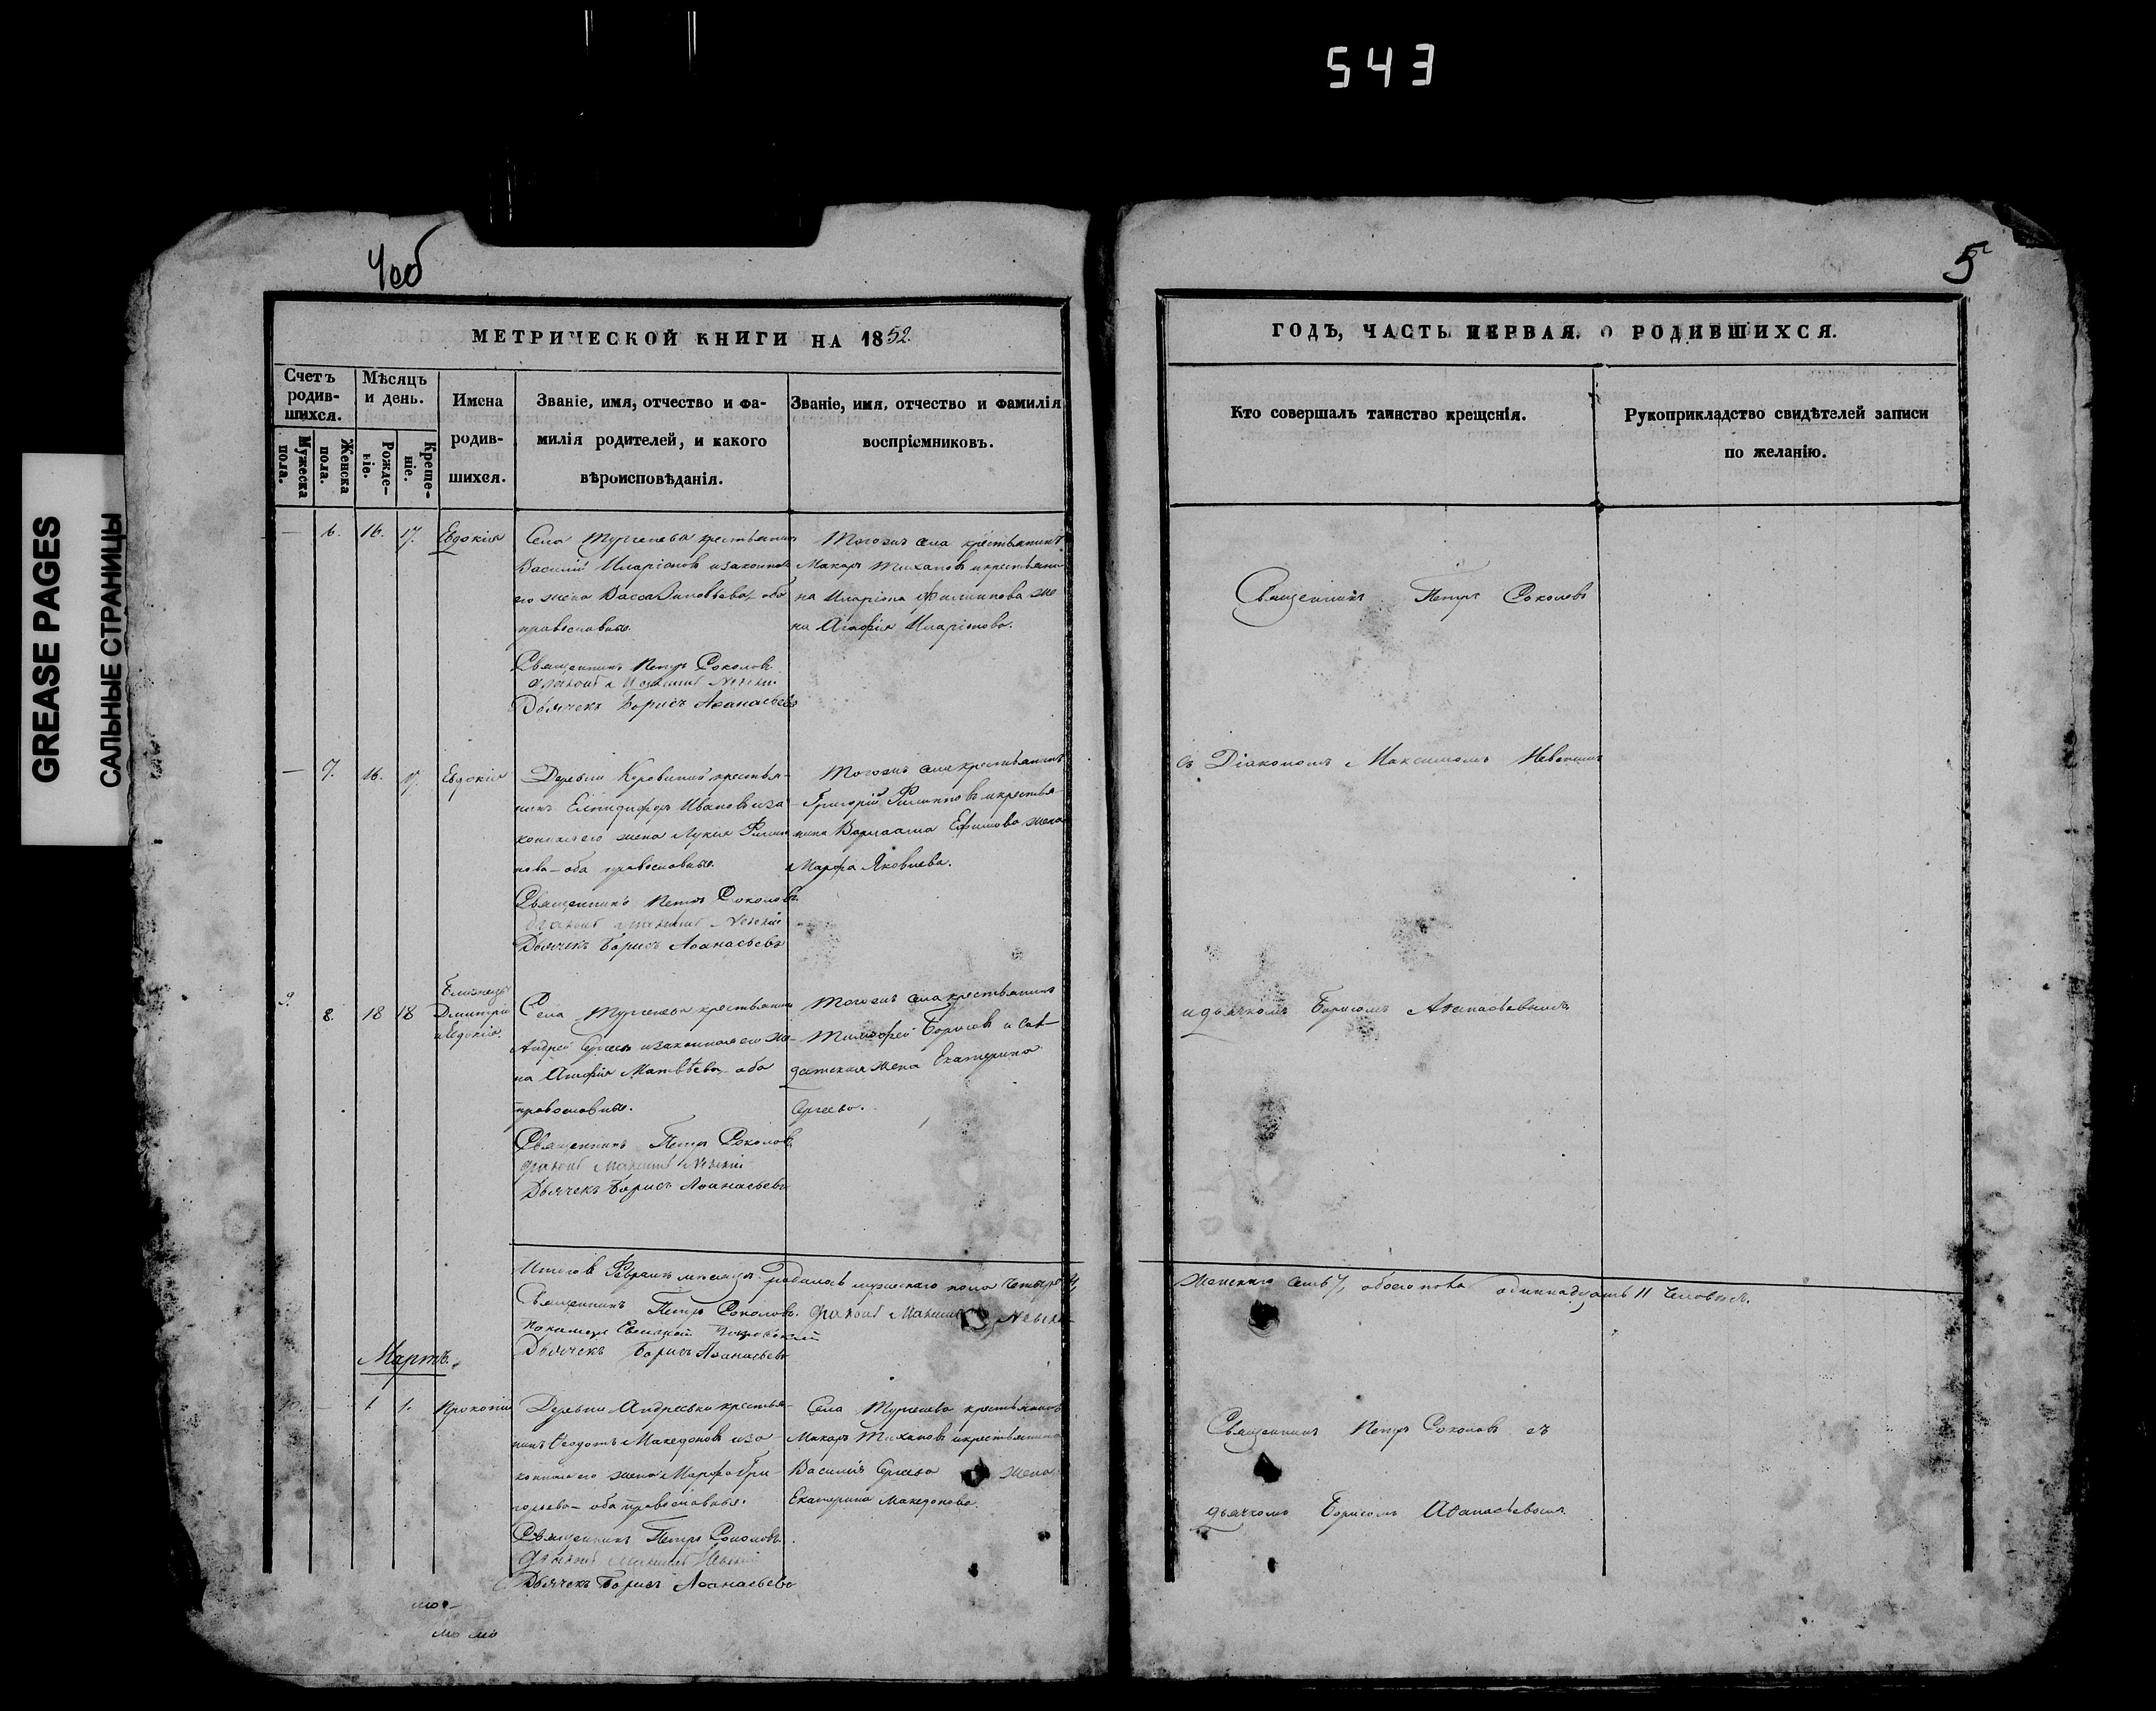 543
GREASE PAGES
САЛЬНЫЕ СТРАНИЦЫ
4об
МЕТРИЧЕСКОЙ КНИГИ НА 1852.
Счетъ родив-шихся.
Мужеска пола.
Женска пола.
Мѣсяцъ и день.
Рожде-ніе.
Креще-ніе.
Имена родив-шихся.
Званіе, имя, отчество и фа-
милія родителей, и какого
вѣроисповѣданія.
Званіе, имя, отчество и фамилія
воспріемниковъ.
— 6. 16. 17. Евдокія
Села Тургенева крестьянинъ
Василій Иларіоновъ и законная
его жена Васса Зиновьева, оба
православные.
Священникъ Петръ Соколовъ.
Діаконъ Максимъ Невскій
Дьячекъ Борисъ Аѳанасьевъ
Тогожъ села крестьянинъ
Макаръ Тихановъ и крестьяни-
на Иларіона Филиппова же
на Агафія Иларіонова.
— 7. 16. 17. Евдокія
Деревни крестья-
нинъ Епидифоръ Ивановъ и за
конная его жена Лукія Филип
пова — оба православные.
Священникъ Петръ Соколовъ.
Діаконъ Максимъ Невскій
Дьячекъ Борисъ Аѳанасьевъ
Тогожъ села крестьянинъ
Григорій Филипповъ и крестья
нина Варлаама Ефимова жена
Марфа Яковлева.
9. 8. 18 18
Близнецы
Дмитрій
и Евдокія.
Села Тургенева крестьянинъ
Андрей Сергѣевъ и законная его же-
на Агафія Матвѣева, оба
православные.
Священникъ Петръ Соколовъ.
Діаконъ Максимъ Невскій
Дьячекъ Борисъ Аѳанасьевъ
Тогожъ села крестьянинъ
Тимофей Борисовъ и сол-
датская жена Екатерина
Сергеева.
Итого въ Февралѣ мѣсяцѣ родилось мужескаго пола четыре 4,
Священникъ Петръ Соколовъ. Діаконъ Максимъ Невскій
Пономарь Евсигній
Дьячекъ Борисъ Аѳанасьевъ
Мартъ.
10. — 1. 1. Прокопій
Деревни Андреевки крестья-
нинъ Ѳеодотъ Македоновъ и за-
конная его жена Марфа Гри-
горьева — оба православные.
Священникъ Петръ Соколовъ.
Діаконъ Максимъ Невскій
Дьячекъ Борисъ Аѳанасьевъ
Села Тургенева крестьянинъ
Макаръ Тихановъ и крестьянина
Василія Сергеева жена
Екатерина Македонова.
5
ГОДЪ, ЧАСТЬ ПЕРВАЯ. О РОДИВШИХСЯ.
Кто совершалъ таинство крещенія.
Рукоприкладство свидѣтелей записи
по желанію.
Священникъ Петръ Соколовъ
съ Діакономъ Максимомъ Невскимъ
и дьячкомъ Борисомъ Аѳанасьевымъ
женскаго семь 7, обоего пола одиннадцать 11 человѣкъ.
Священникъ Петръ Соколовъ съ
дьячкомъ Борисомъ Аѳанасьевымъ.